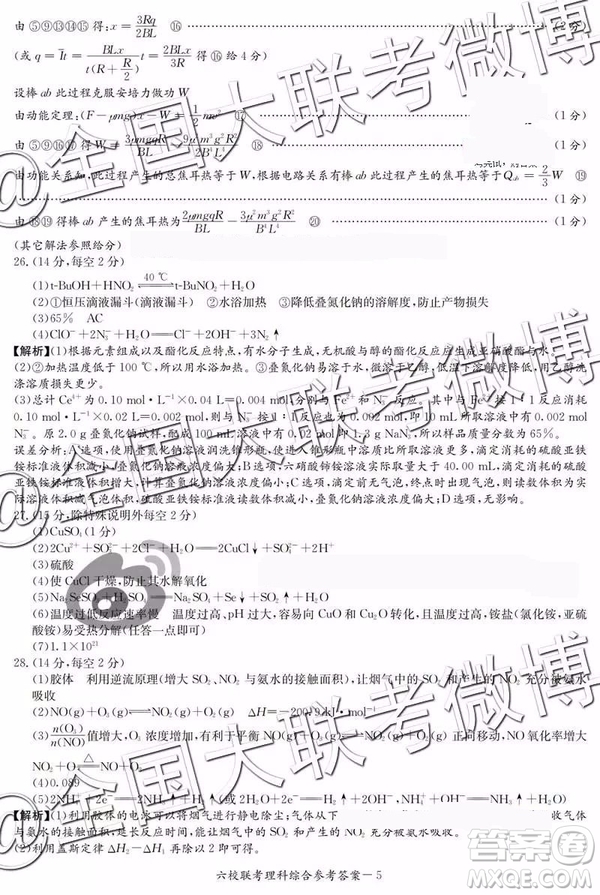 由⑤⑨⑬⑭⑮得:x=3Rq/2BL ⑯ (1分)
(或 q=It=BLx/t(R+R/2) t=2BLx/3R 得⑯给4分)
设棒 ab 此过程克服安培力做功 W
由动能定理:(F-μmg)x-W=1/2 mv² ⑰ (1分)
由⑤⑨⑯⑰得W=3μmgqR/BL-9μ²m³g²R²/2B⁴L⁴ ⑱
由功能关系知,此过程产生的总焦耳热等于 W,根据电路关系有棒 ab 此过程产生的焦耳热等于Q_ab=2/3 W ⑲
(1分)
由⑱⑲得棒 ab 产生的焦耳热为2μmgqR/BL-3μ²m³g²R²/B⁴L⁴ ⑳ (1分)
(其它解法参照给分)
26.(14分,每空2分)
(1)t-BuOH+HNO₂ 40 ℃ t-BuNO₂+H₂O
(2)①恒压滴液漏斗(滴液漏斗) ②水浴加热 ③降低叠氮化钠的溶解度,防止产物损失
(3)65% AC
(4)ClO⁻+2N₃⁻+H₂O=Cl⁻+2OH⁻+3N₂↑
【解析】(1)根据元素组成以及酯化反应特点,有水分子生成,无机酸与醇的酯化反应生成亚硝酸酯与水
(2)②加热温度低于 100 ℃,所以用水浴加热。③叠氮化钠易溶于水,微溶于乙醇,低温下溶解度降低,用乙醇洗
涤溶质损失更小。
(3)总计 Ce⁴⁺为 0.10 mol·L⁻¹×0.04 L=0.004 mol,分别与 Fe²⁺和 N₃⁻按1∶1反应消耗
0.10 mol·L⁻¹×0.02 L=0.002 mol,即与 N₃⁻按1∶1反应也为 0.002 mol,即 10 mL 溶液中有 0.002 mol
N₃⁻。原 2.0 g 叠氮化钠试样,配成 100 mL 溶液中有 0.02 mol 即 1.3 g NaN₃,所以样品质量分数为 65%。
误差分析:A选项,使用叠氮化钠溶液润洗锥形瓶,使进入锥形瓶中溶质比所取溶液更多,滴定消耗的硫酸亚铁
铵标准液体积减小,叠氮化钠溶液浓度偏大;B选项,六硝酸铈铵溶液实际取量大于 40.00 mL,滴定消耗硫酸
亚铁铵标准液体积增大,叠氮化钠溶液浓度偏小;C选项,滴定前无气泡,终点时出现气泡,硫酸亚铁铵标准液读
数体积减小气泡体积,硫酸亚铁铵标准液读数体积减小,叠氮化钠溶液浓度偏大;D选项,无影响。
27.(15分,除特殊说明外每空2分)
(1)CuSO₄(1分)
(2)2Cu²⁺+SO₃²⁻+2Cl⁻+H₂O=2CuCl↓+SO₄²⁻+2H⁺
(3)硫酸
(4)使 CuCl 干燥,防止其水解氧化
(5)Na₂SeSO₃+H₂SO₄=Na₂SO₄+Se↓+SO₂↑+H₂O
(6)温度过低反应速率慢 温度过高、pH过大,容易向 CuO 和 Cu₂O 转化,且温度过高,铵盐(氯化铵,亚硫
酸铵)易受热分解(任答一点即可)
(7)1.1×10²¹
28.(14分,每空2分)
(1)胶体 利用逆流原理(增大 SO₂、NOₓ与氨水的接触面积),让烟气中的 SO₂ 和产生的 NO₂ 充分被氨水
吸收
(2)NO(g)+O₃(g)=NO₂(g)+O₂(g) ΔH=-200.9 kJ·mol⁻¹
(3)n(O₃)/n(NO)值增大,O₃浓度增大,有利于平衡 NO(g)+O₃(g)⇌NO₂(g)+O₂(g)向右移动,NO氧化率增大
(4)0.089
(5)2NH₄⁺+2e⁻=2NH₃↑+H₂↑(或 2H₂O+2e⁻=H₂↑+2OH⁻,NH₄⁺+OH⁻=NH₃↑+H₂O)
【解析】(1)利用胶体的电泳可以将烟气进行静电除尘;气体从下
体与氨水的接触面积,让烟气中的 SO₂ 和产生的 NO₂ 充分被氨水吸收。
(2)利用盖斯定律 ΔH₂-ΔH₁=
六校联考理科综合参考答案-5
@全国大联考微博
@全国大联考微博
答案圈
MXQE.COM